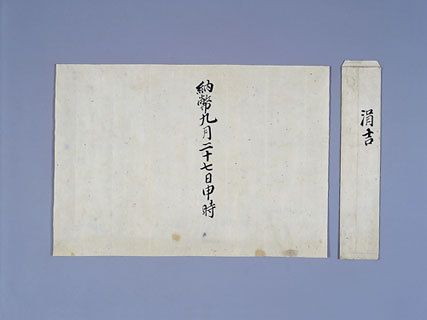 涓吉
納幣九月二十七日申時